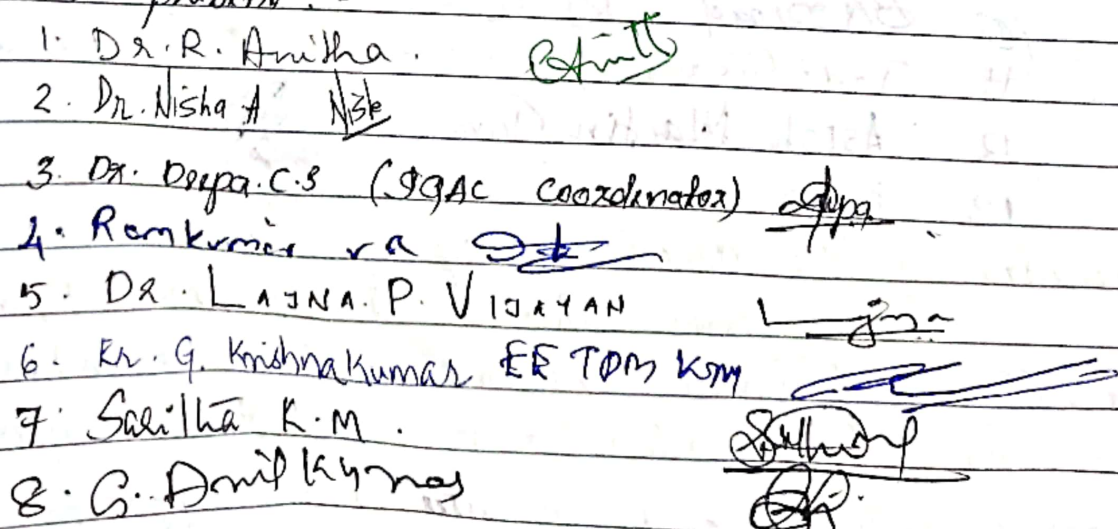 1. Dr. R. Anitha.
2. Dr. Nisha A
3. Dr. Deepa. C.S (IQAC Coordinator) Deepa
4. Ramkumar r a
5. Dr. Lajna. P. Vijayan Lajna
6. Er. G. Krishnakumar EE TDM KSM
7. Saritha K.M.
8. G. Anil Kumar